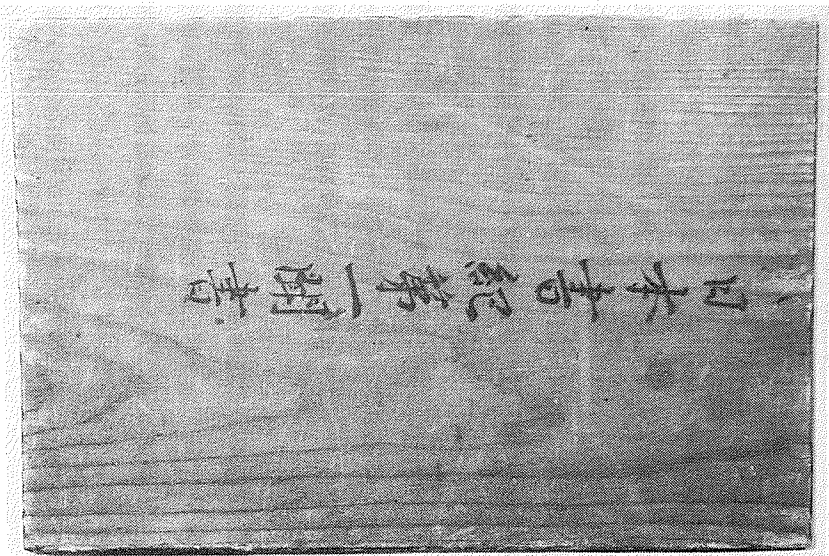 日本書紀第一聞書